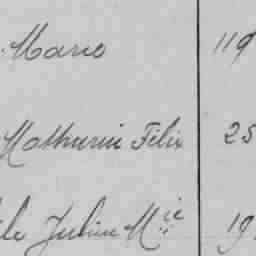 Marie 119
Mathurin Félix 25
le Julien Mie 19